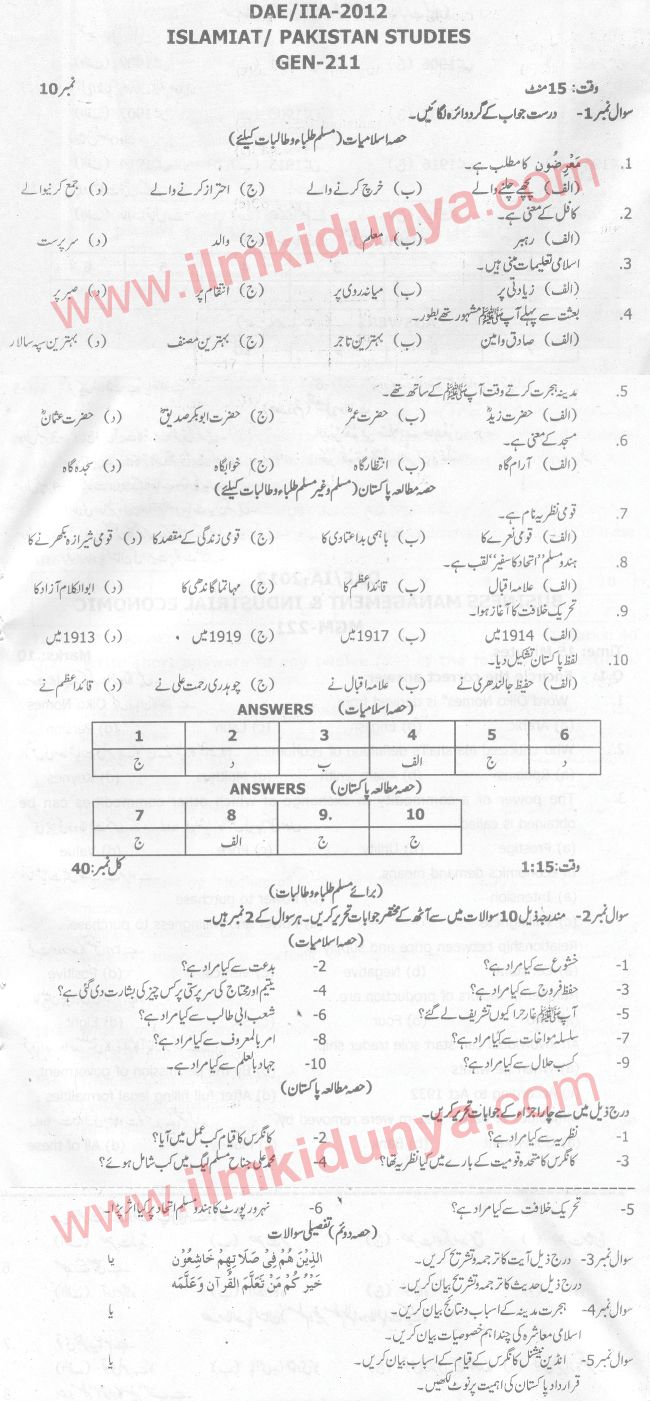 DAE/IIA-2012
ISLAMIAT/ PAKISTAN STUDIES
GEN-211
وقت: 15 منٹ نمبر 10
سوال نمبر 1- درست جواب کے گرد دائرہ لگائیں۔
حصہ اسلامیات (مسلم طلباء و طالبات کیلئے)
1. مَعْرِضُون کا مطلب ہے۔
(الف) پیچھے چلنے والے (ب) خرچ کرنے والے (ج) احتراز کرنے والے (د) جمع کرنیوالے
2. کافل کے معنی ہے۔
(الف) رہبر (ب) معلم (ج) والد (د) سرپرست
3. اسلامی تعلیمات مبنی ہیں۔
(الف) زیادتی پر (ب) میانہ روی پر (ج) انتقام پر (د) صبر پر
4. بعثت سے پہلے آپ ﷺ مشہور تھے بطور۔
(الف) صادق و امین (ب) بہترین تاجر (ج) بہترین مصنف (د) بہترین سپہ سالار
5. مدینہ ہجرت کرتے وقت آپ ﷺ کے ساتھ تھے۔
(الف) حضرت زیدؓ (ب) حضرت عمرؓ (ج) حضرت ابوبکر صدیقؓ (د) حضرت عثمانؓ
6. مسجد کے معنی ہے۔
(الف) آرام گاہ (ب) انتظار گاہ (ج) خوابگاہ (د) سجدہ گاہ
حصہ مطالعہ پاکستان (مسلم و غیر مسلم طلباء و طالبات کیلئے)
7. قومی نظریہ نام ہے۔
(الف) قومی نعرے کا (ب) باہمی بداعتمادی کا (ج) قومی زندگی کے مقصد کا (د) قومی شیرازہ بکھرنے کا
8. ہندو مسلم "اتحاد کا سفیر" لقب ہے۔
(الف) علامہ اقبال (ب) قائداعظم کا (ج) مہاتما گاندھی کا (د) ابوالکلام آزاد کا
9. تحریک خلافت کا آغاز ہوا۔
(الف) 1914 میں (ب) 1917 میں (ج) 1919 میں (د) 1913 میں
10. لفظ پاکستان تشکیل دیا۔
(الف) حفیظ جالندھری نے (ب) علامہ اقبال نے (ج) چوہدری رحمت علی نے (د) قائداعظم نے
(حصہ اسلامیات) ANSWERS
1 2 3 4 5 6
ج د ب الف ج د
(حصہ مطالعہ پاکستان) ANSWERS
7 8 9. 10
ج الف ج ج
وقت: 1:15 کل نمبر: 40
(برائے مسلم طلباء و طالبات)
سوال نمبر 2- مندرجہ ذیل 10 سوالات میں سے آٹھ کے مختصر جوابات تحریر کریں۔ ہر سوال کے 2 نمبر ہیں۔
(حصہ اسلامیات)
1- خشوع سے کیا مراد ہے؟ 2- بدعت سے کیا مراد ہے؟
3- حفظ فروج سے کیا مراد ہے؟ 4- یتیم اور محتاج کی سرپرستی پر کس چیز کی بشارت دی گئی ہے؟
5- آپ ﷺ غار حرا کیوں تشریف لے گئے؟ 6- شعب ابی طالب سے کیا مراد ہے؟
7- سلسلہ مواخات سے کیا مراد ہے؟ 8- امر بالمعروف سے کیا مراد ہے؟
9- کسب حلال سے کیا مراد ہے؟ 10- جہاد بالعلم سے کیا مراد ہے؟
(حصہ مطالعہ پاکستان)
درج ذیل میں سے چار اجزاء کے جوابات تحریر کریں۔
1- نظریہ سے کیا مراد ہے؟ 2- کانگرس کا قیام کب عمل میں آیا؟
3- کانگرس کا متحدہ قومیت کے بارے میں کیا نظریہ تھا؟ 4- محمد علی جناح مسلم لیگ میں کب شامل ہوئے؟
5- تحریک خلافت سے کیا مراد ہے؟ 6- نہرو رپورٹ کا ہندو مسلم اتحاد پر کیا اثر پڑا۔
(حصہ دوئم) تفصیلی سوالات
سوال نمبر 3- درج ذیل آیت کا ترجمہ و تشریح کریں۔ الَّذِيْنَ هُمْ فِيْ صَلَاتِهِمْ خَاشِعُوْن یا
درج ذیل حدیث کا ترجمہ و تشریح بیان کریں۔ خَيْرُ كُمْ مَنْ تَعَلَّمَ الْقُرْآن وَعَلَّمَه
سوال نمبر 4- ہجرت مدینہ کے اسباب و نتائج بیان کریں۔ یا
اسلامی معاشرہ کی چند اہم خصوصیات بیان کریں۔
سوال نمبر 5- انڈین نیشنل کانگرس کے قیام کے اسباب بیان کریں۔ یا
قرارداد پاکستان کی اہمیت پر نوٹ لکھیں۔
www.ilmkidunya.com
www.ilmkidunya.com